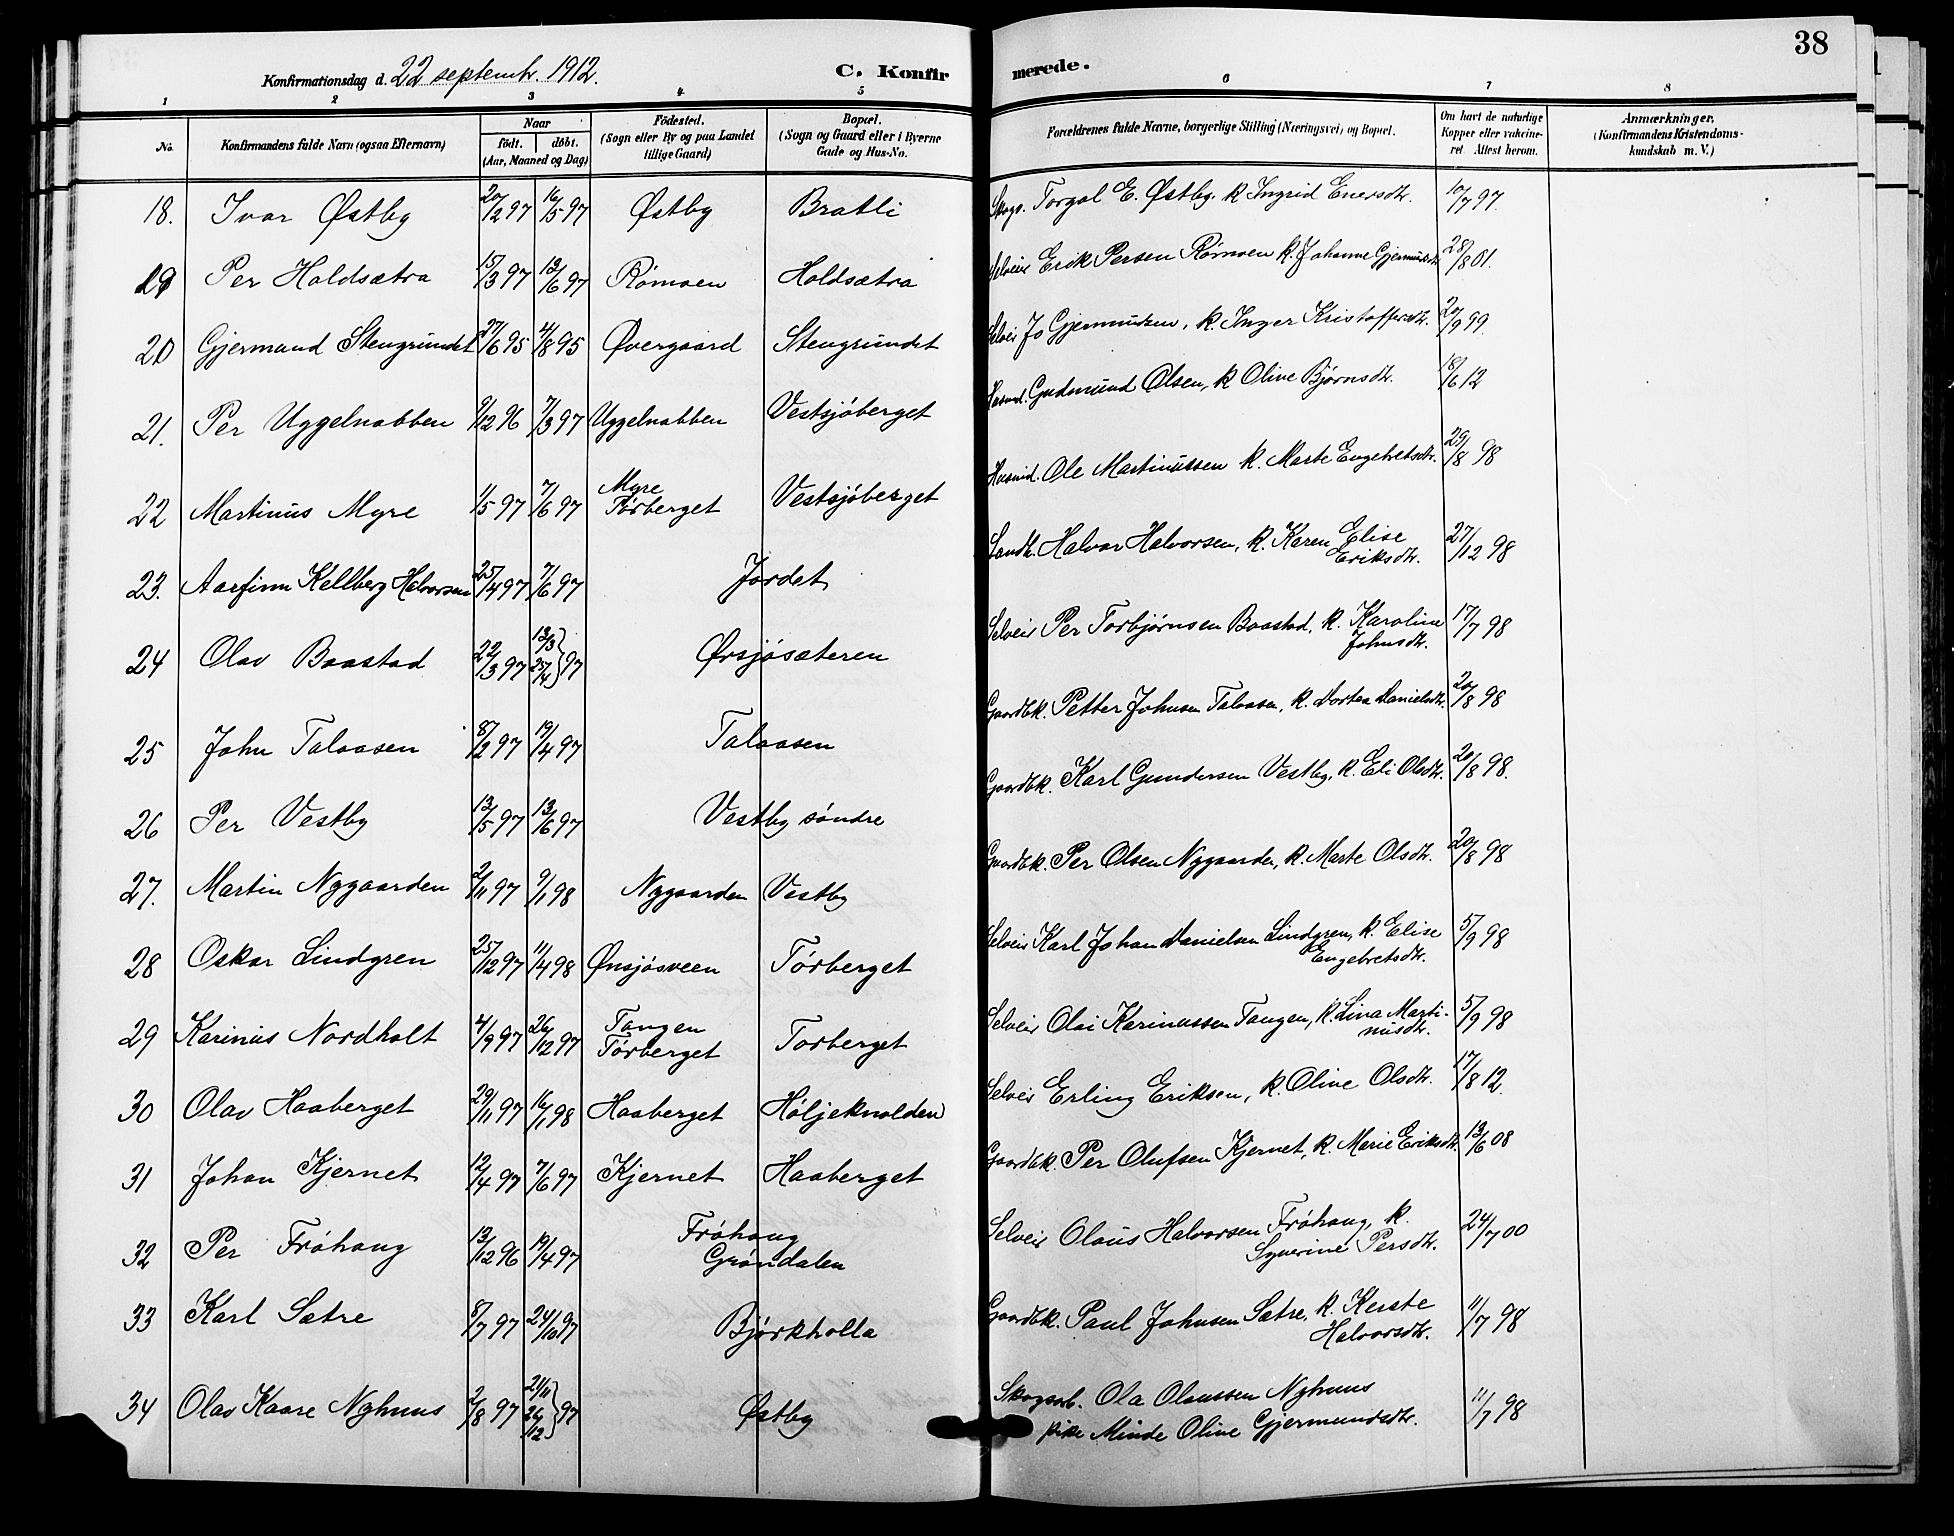 38
Konfirmationsdag d. 22 septembr. 1912.
C. Konfirmerede.
1 2 3 4 5 6 7 8
No.
Konfirmandens fulde Navn (ogsaa Efternavn)
Naar
født. døbt.
(Aar, Maaned og Dag)
Födested.
(Sogn eller By og paa Landet
tillige Gaard)
Bopæl.
(Sogn og Gaard eller i Byerne
Gade og Hus-No.
Forældrenes fulde Navne, borgerlige Stilling (Næringsvei) og Bopæl.
Om havt de naturlige
Kopper eller vakcine-
ret Attest herom.
Anmærkninger.
(Konfirmandens Kristendoms-
kundskab m. V.)
18. Ivar Østby 20/2 97 16/5 97 Østby Bratli Skogs. Torgal E. Østby. k Ingrid Enersdtr. 10/7 97.
19 Per Holdsætra 15/3 97 13/6 97 Rømoen Holdsætra Selveir Erik Persen Rømoen k. Johanne Gjermundsdtr 28/8 01.
20 Gjermand Stengrundet 27/6 95 4/8 95 Øvergaard Stengrundet Selvei Jo Gjermundsen, k. Inger Kristoffersdtr. 20/9 99.
21. Per Uggelnabben 9/12 96 7/3 97 Uggelnabben Vestsjøberget Husmd. Gudmund Olsen, k Oline Bjørnsdtr. 18/6 12
22 Martinus Myre 1/5 97 7/6 97 Myre
Tørberget Vestsjøberget Husmd. Ole Martinussen k. Marte Engebretsdtr. 29/8 98
23. Aarfinn Kellberg Halvorsen 25/4 97 7/6 97 Jordet Landh. Halvor Halvorsen, k. Karen Elise
Eriksdtr. 27/12 98
24 Olav Baastad 22/3 97 13/3 25/4 } 97 Ørsjøsæteren Selveir Per Torbjørnsen Baastad, k. Karoline
Johnsdtr. 17/7 98
25 John Talaasen 8/2 97 19/4 97 Talaasen Gaardbk. Petter Johnsen Talaasen, k. Dortea Danielsdtr. 20/8 98
26 Per Vestby 13/5 97 13/6 97 Vestby søndre Gaardbk. Karl Gundersen Vestby, k. Eli Olsdtr. 20/8 98.
27. Martin Nygaarden 2/11 97 9/1 98 Nygaarden Vestby Gaardbk. Per Olsen Nygaarden, k. Marte Olsdtr. 20/8 98
28 Oskar Lindgren 25/12 97 11/4 98 Ønsjøsveen Tørberget Selveir Karl Johan Danielsen Lindgren, k. Elise
Engebretsdtr. 5/9 98
29 Karinius Nordholt 4/9 97 26/12 97 Tangen
Tørberget Torberget Selveir Olai Karinussen Tangen, k. Lina Marti-
nusdtr. 5/9 98
30 Olav Haaberget 29/11 97 16/1 98 Haaberget Høljeknolden Selveir Erling Eriksen, k. Oline Olsdtr. 17/8 12.
31 Johan Kjernet 12/4 97 7/6 97 Kjernet Haaberget Gaardbk. Per Olufsen Kjernet, k. Marie Eriksdtr. 13/6 08
32 Per Frøhaug 13/12 96 19/4 97 Frøhaug
Grøndalen Selveir Olaus Halvorsen Frøhaug, k.
Syverine Persdtr. 24/7 00
33 Karl Sætre 8/7 97 24/10 97 Bjørkholla Gaardbk. Paul Johnsen Sætre, k. Kerste
Halvorsdtr. 11/7 98
34 Olav Kaare Nyhuus 2/8 97 21/11 26/12 } 97 Østby Skogsarb. Ola Olaussen Nyhuus
pike Minde Oline Gjermundsdtr. 11/7 98